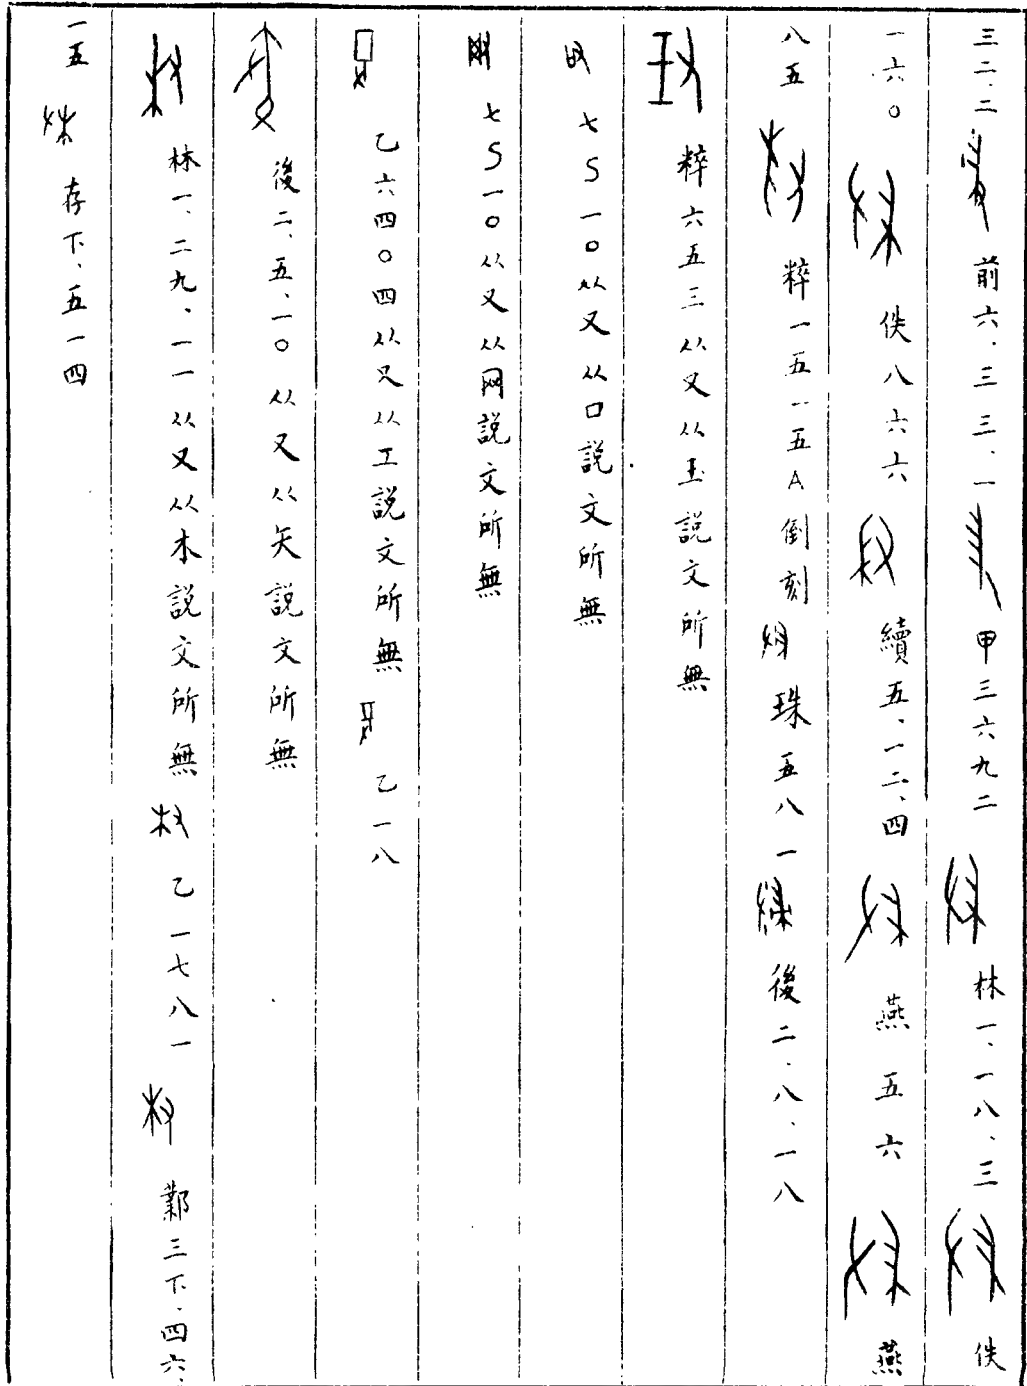 三二.二 前六.三三.一 甲三六九二 林一.一八.三 佚
一六〇 佚八六六 續五.一二.四 燕五六 燕
八五 粹一五一五A倒刻 珠五八一 後二.八.一八
粹六五三从又从玉説文所無
七S一〇从又从口説文所無
七S一〇从又从网説文所無
乙六四〇四从又从工説文所無 乙一八
後二.五.一〇从又从矢説文所無
林一.二九.一一从又从木説文所無 乙一七八一 鄴三下.四六.
一五 存下.五一四